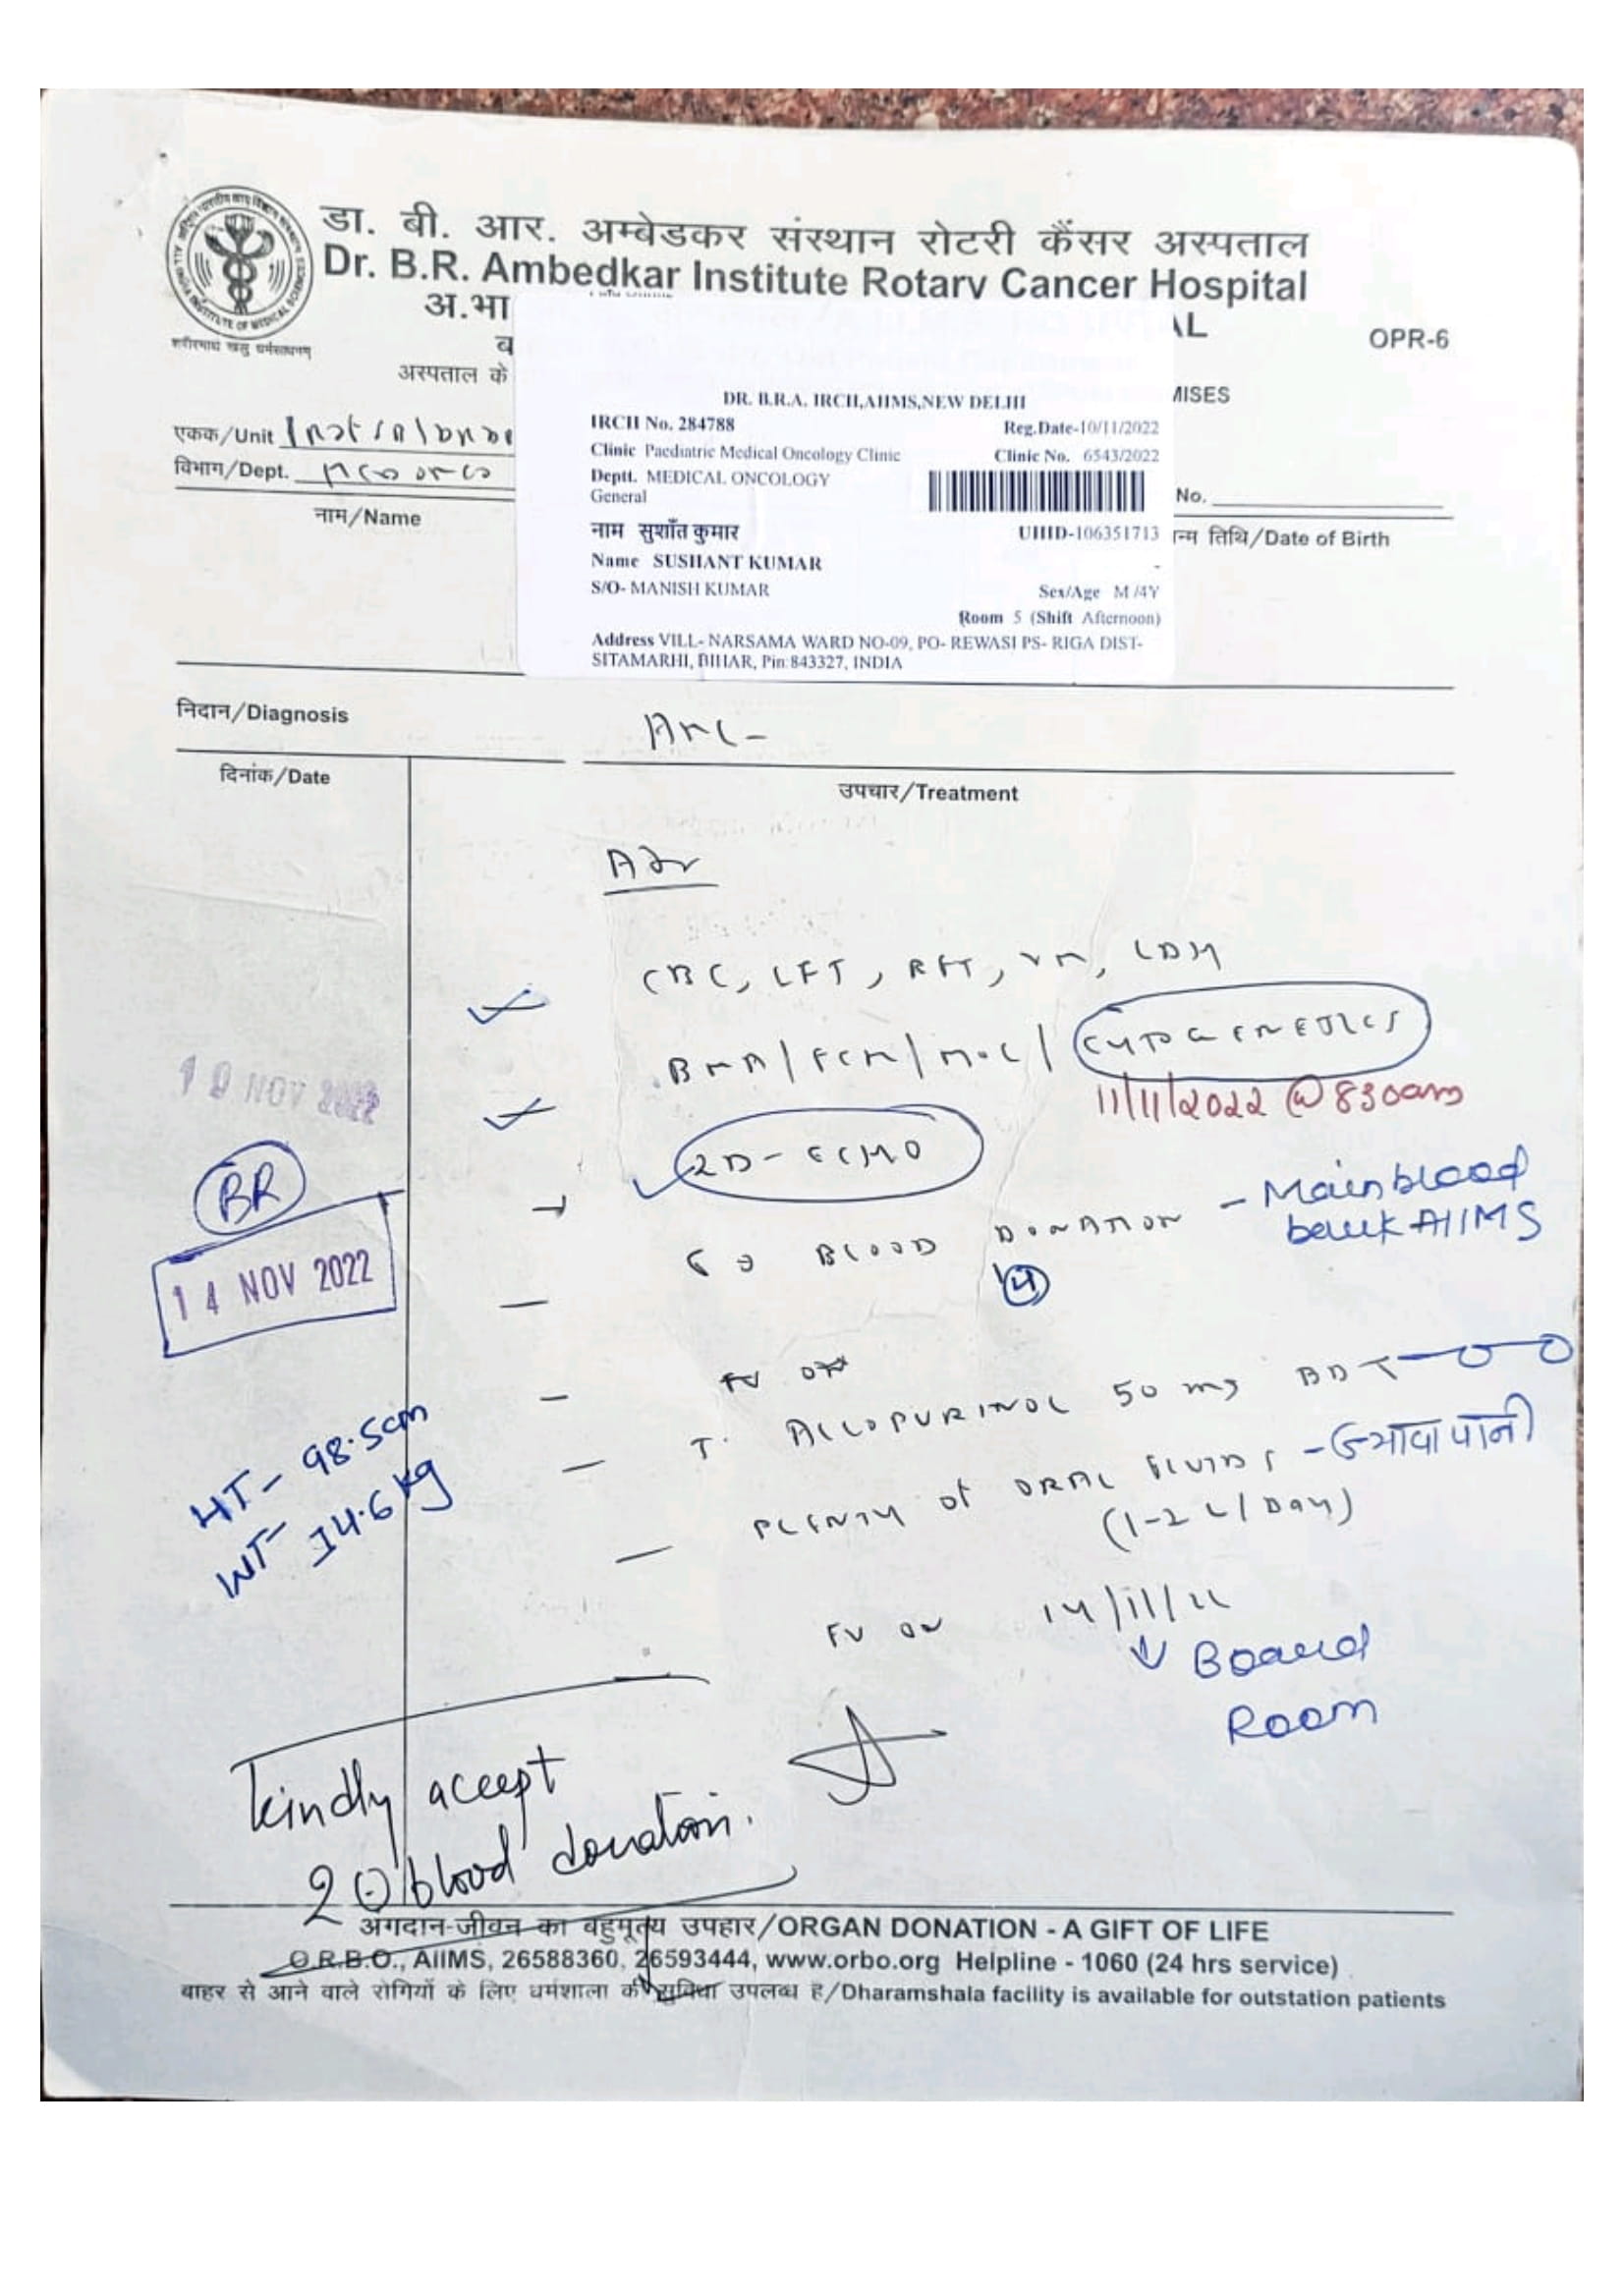 डा. बी. आर. अम्बेडकर संस्थान रोटरी कैंसर अस्पताल
Dr. B.R. Ambedkar Institute Rotary Cancer Hospital
अ.भा
AL
OPR-6
अस्पताल के
MISES
DR. B.R.A. IRCH,AIIMS,NEW DELHI
IRCH No. 284788 Reg.Date-10/11/2022
Clinic Paediatric Medical Oncology Clinic Clinic No. 6543/2022
Deptt. MEDICAL ONCOLOGY
General
नाम सुशाँत कुमार UHID-106351713
Name SUSHANT KUMAR
S/O- MANISH KUMAR Sex/Age M /4Y
Room 5 (Shift Afternoon)
Address VILL- NARSAMA WARD NO-09, PO- REWASI PS- RIGA DIST-
SITAMARHI, BIHAR, Pin:843327, INDIA
एकक/Unit
विभाग/Dept.
No.
नाम/Name
न्म तिथि/Date of Birth
निदान/Diagnosis AML
दिनांक/Date
उपचार/Treatment
Adv
CBC, LFT, RFT, VM, LDH
BMA/FCM/MOL/CYTOGENETICS
11/11/2022 @ 830am
10 NOV 2022
2D-ECHO
BR
14 NOV 2022
BLOOD DONATION - Main blood
bank AIIMS
T. ALLOPURINOL 50 mg BD
PLENTY of ORAL FLUIDS - ज्यादा पानी
(1-2 L/Day)
HT- 98.5cm
WT- 14.6 kg
FU ON 14/11/22
Board
Room
kindly accept
2 blood donation.
अंगदान-जीवन का बहुमूल्य उपहार/ORGAN DONATION - A GIFT OF LIFE
O.R.B.O., AIIMS, 26588360, 26593444, www.orbo.org Helpline - 1060 (24 hrs service)
बाहर से आने वाले रोगियों के लिए धर्मशाला की सुविधा उपलब्ध है/Dharamshala facility is available for outstation patients